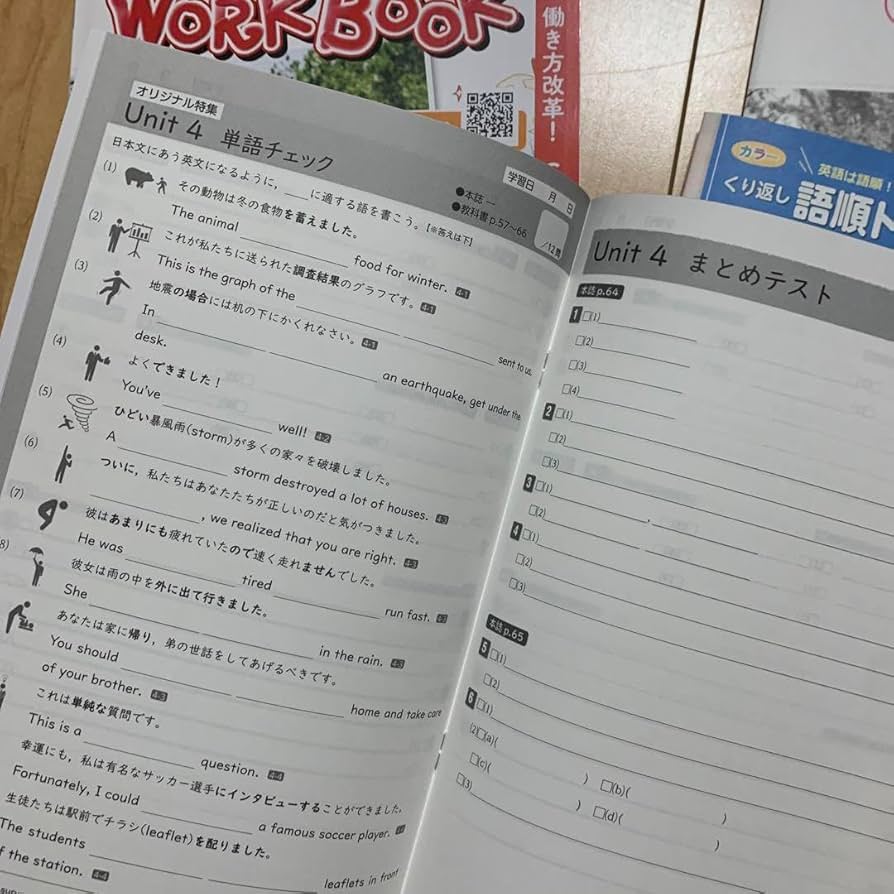 WORK BOOK
働き方改革!
カラー
英語は語順!
くり返し
語順
オリジナル特集
Unit 4 単語チェック
学習日 月 日
●本誌 ー
●教科書p.57~66
/12問
日本文にあう英文になるように，___に適する語を書こう。【※答えは下】
(1) その動物は冬の食物を蓄えました。
The animal ___ food for winter. 4-1
(2) これが私たちに送られた調査結果のグラフです。 4-1
This is the graph of the ___ ___ sent to us.
(3) 地震の場合には机の下にかくれなさい。 4-1
In ___ ___ an earthquake, get under the
desk.
(4) よくできました!
You've ___ well! 4-2
(5) ひどい暴風雨(storm)が多くの家々を破壊しました。
A ___ storm destroyed a lot of houses. 4-3
(6) ついに，私たちはあなたたちが正しいのだと気がつきました。
___, we realized that you are right. 4-3
(7) 彼はあまりにも疲れていたので速く走れませんでした。
He was ___ tired ___ run fast.
8) 彼女は雨の中を外に出て行きました。
She ___ ___ in the rain. 4-3
あなたは家に帰り，弟の世話をしてあげるべきです。
You should ___ ___ home and take care
of your brother. 4-3
これは単純な質問です。
This is a ___ question. 4-4
幸運にも，私は有名なサッカー選手にインタビューすることができました。
Fortunately, I could ___ a famous soccer player.
生徒たちは駅前でチラシ(leaflet)を配りました。
The students ___ ___ leaflets in front
f the station. 4-4
Unit 4 まとめテスト
本誌 p.64
1 □(1)
□(2)
□(3)
□(4)
2 □(1)
□(2)
□(3)
3 □(1)
□(2) ,
4 □(1)
□(2)
□(3)
本誌 p.65
5 □(1)
□(2)
6 □(1)
(2)□(a)( ) □(b)( )
□(c)( ) □(d)( )
□(3)